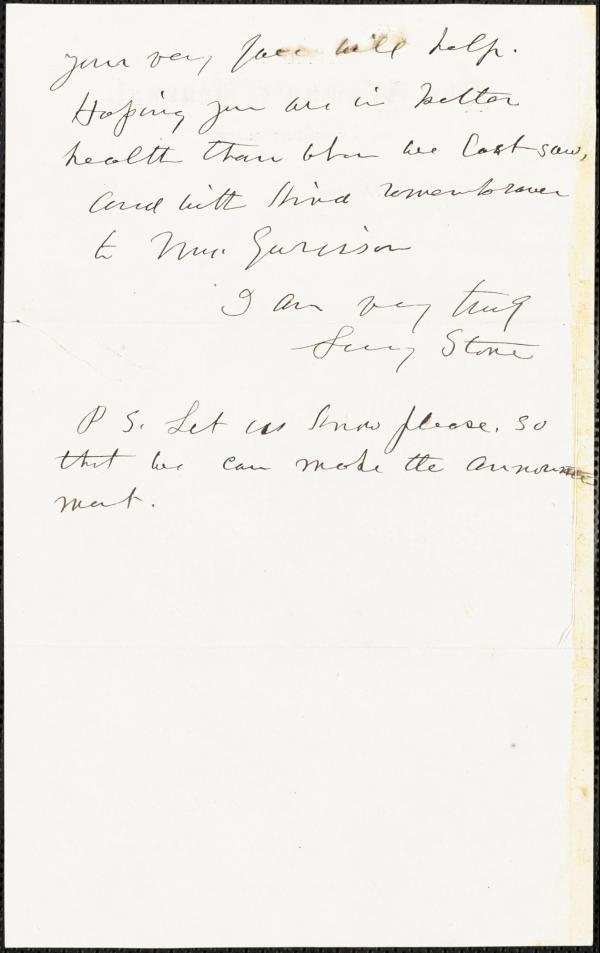 your very face will help.
Hoping you are in better
health than when we last saw,
and with kind remembrance
to Mrs. Garrison
I am very truly
Lucy Stone
P S. Let us know please, so
that we can make the announce
ment.